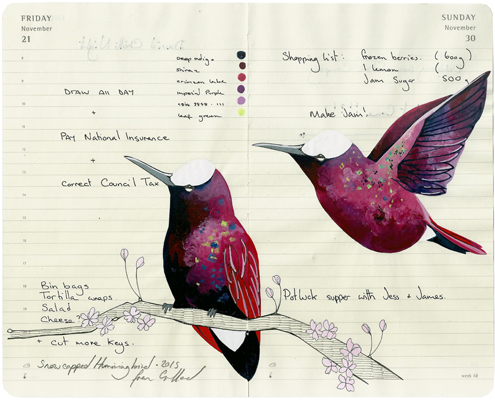 FRIDAY
November
21
Deep indigo
Shiraz
Crimson lake
Imperial Purple
Leaf green
DRAW All DAY
+
PAY National Insurance
+
Correct Council Tax
Bin bags
Tortilla wraps
Salad
Cheese
+ Cut more Keys.
Snowcapped Hummingbird - 2015
SUNDAY
November
30
Shopping list: frozen berries. (600g)
1 lemon
Jam Sugar 500g
Make Jam!
Potluck supper with Jess + James.